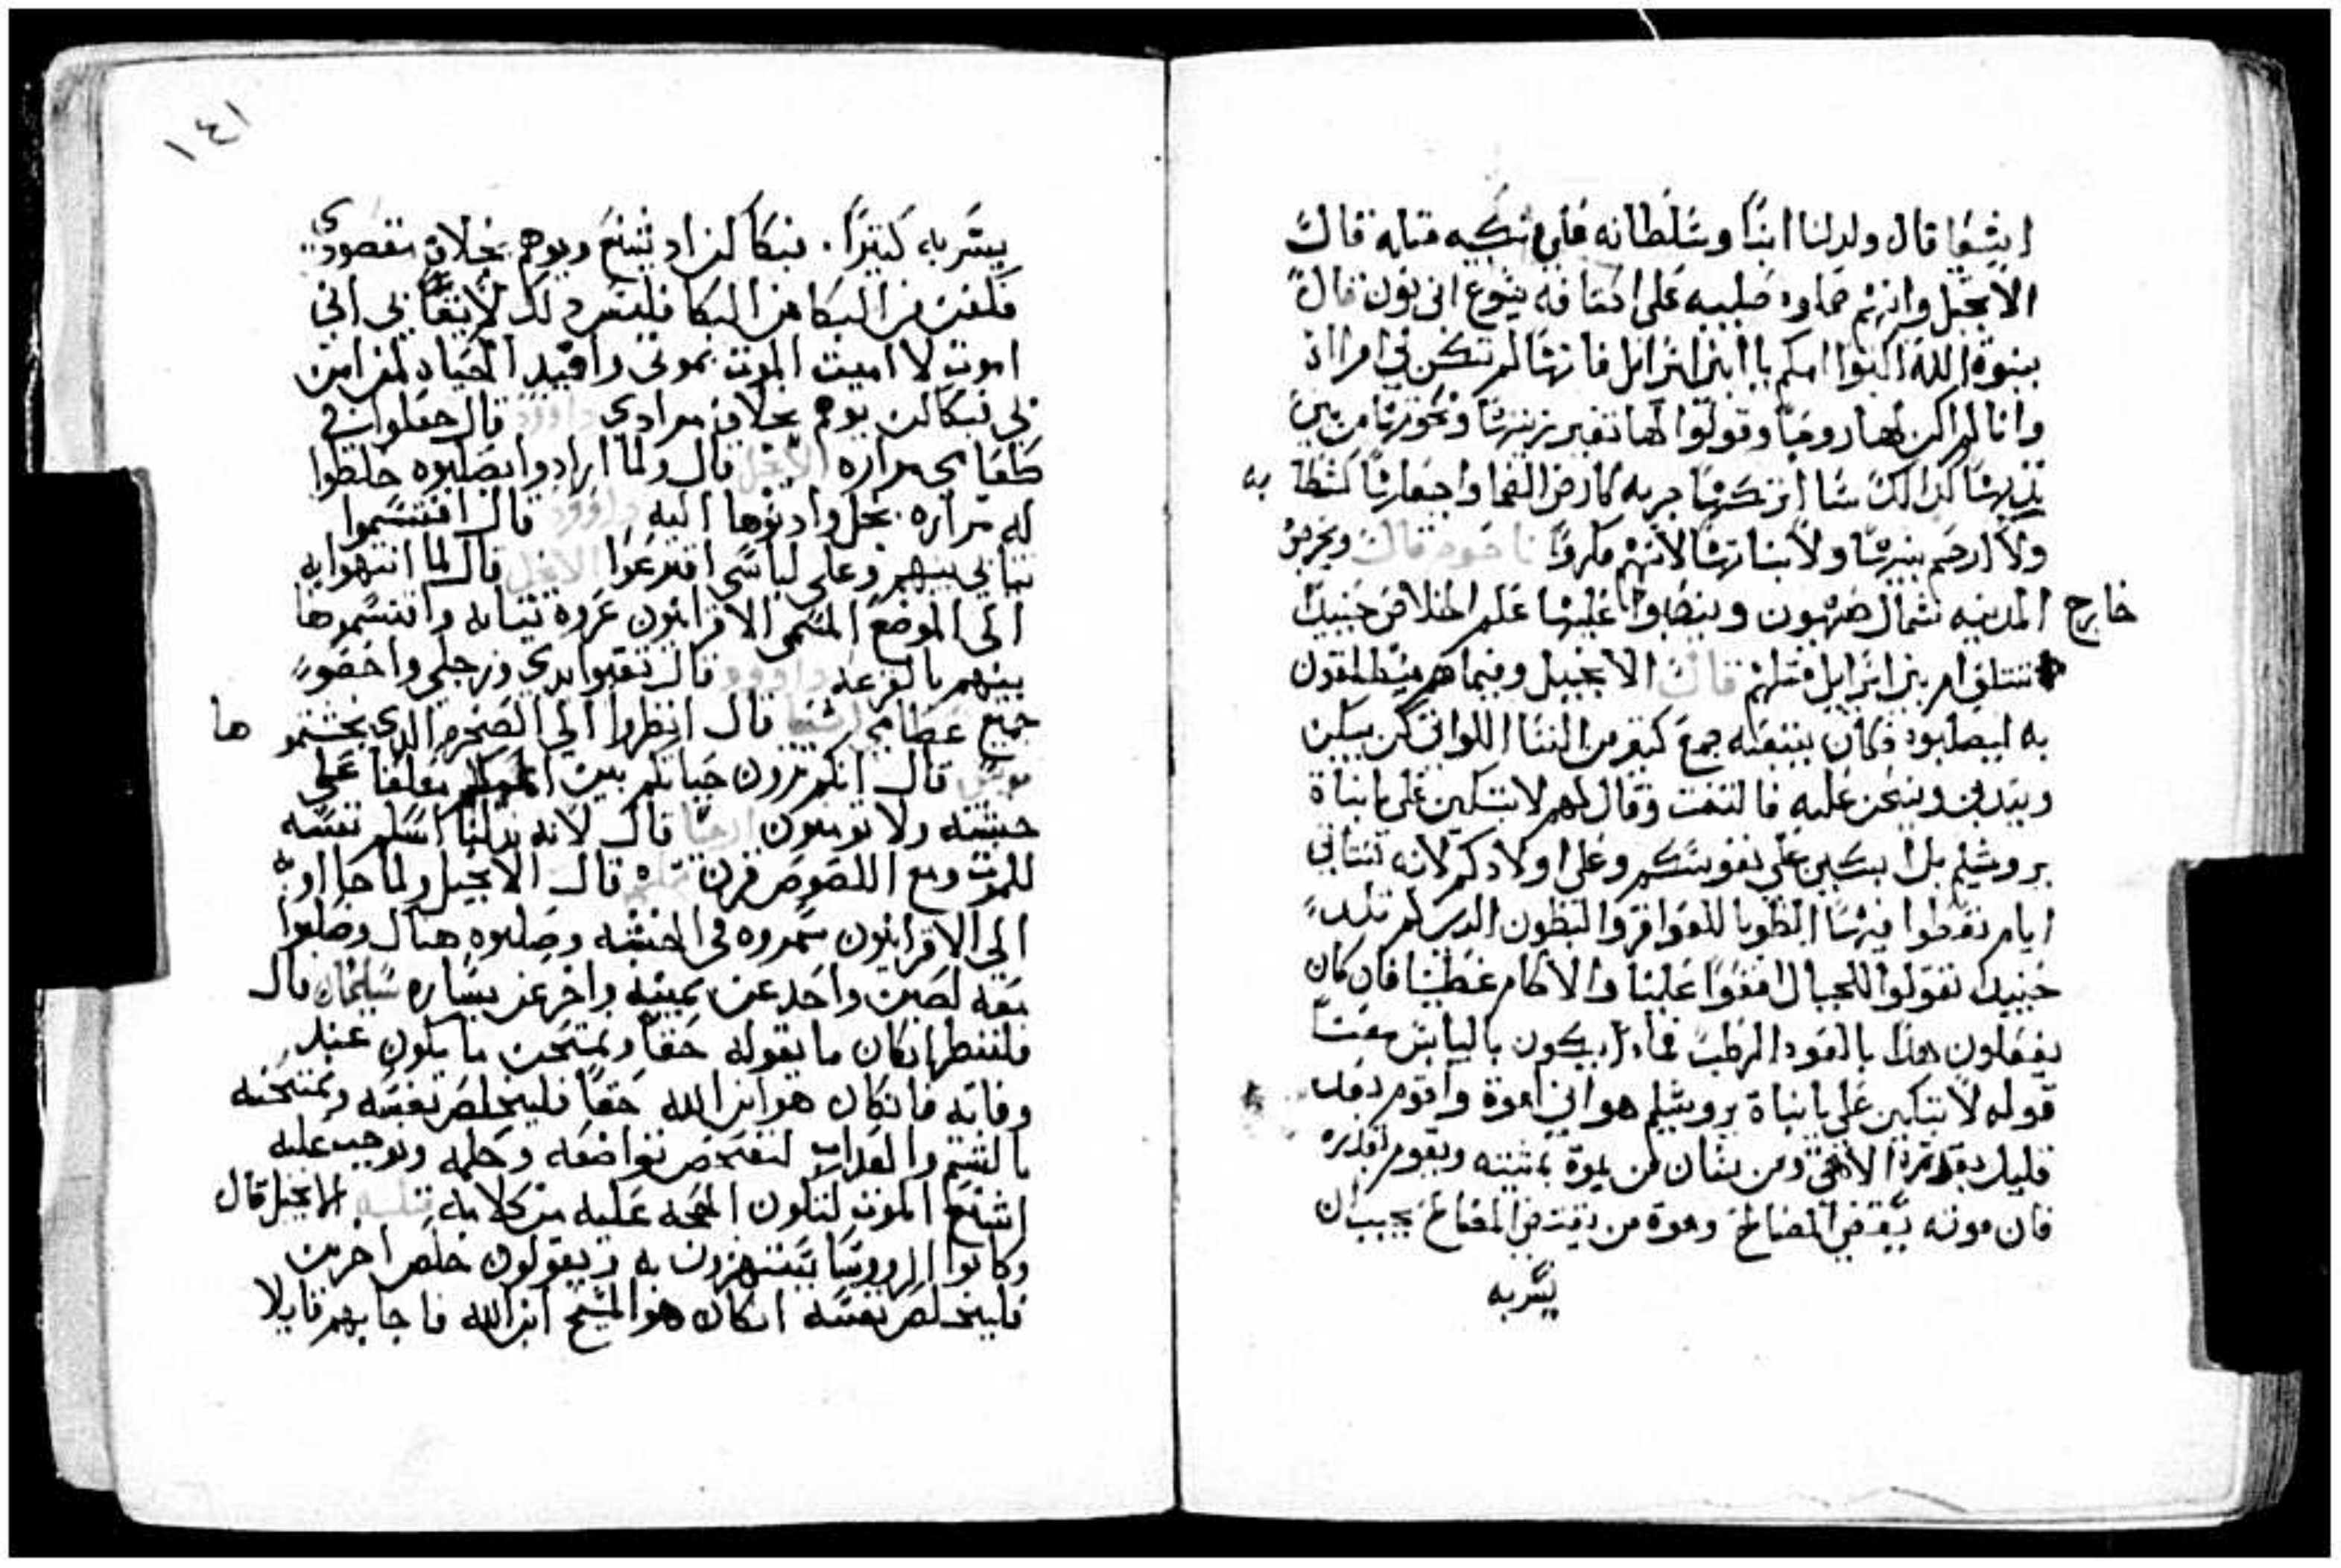 اشعيا قال ولد لنا ابنا وسلطانه على منكبيه مثله قالت
الانجيل وانهم حملوه صليبه على اكتافه يشوع ابن نون قال
بنوة الله ابكوا امكم يا ابن اسرايل فانها لم تكن لي امراة
وانا لم اكن لها زوجا وقولوا لها تغير زينتها ونحورها من بين
يديها كذالك شا اتركها جربه كارض القما واجعلها كشطا به
ولا ارحم بنيها ولا بناتها لانهم مكروا ناحوم قالت ويخرجون
خارج المدينه شمال صهيون وينصبوا عليها علم الخلاص حينيذ
تتلقى ام بني اسرايل قتلهم قالت الانجيل وفيما هم منطلقون
به ليصلبوه وكان يتبعه جمع كثير من النسا اللواتي كن يبكين
ويندبن وينحن عليه فالتفت وقال لهم لا تبكين علي يا بناة
يروشليم بل ابكين على نفوسكم وعلى اولادكم لانه ستاتي
ايام تعطوا فيها الطوبا للعواقر والبطون الذي لم تلد
حينيذ تقولوا للجبال اقعوا علينا والاكام غطينا فان كان
يفعلون هذا بالعود الرطب فماذا يكون باليابس معنى
قوله لا تبكين علي يا بناة يروشليم هو اني اموة واقوم بعد
قليل بقدرة الاهي ومن شان من يموة بمشيته ويقوم بقدره
فان موته يقتضي المصالح وموة من يقتضي المصالح يجيب ان
يسر به
١٤١
يسر به كثيرا. فبكا من اد يشنع ويوهم بخلاف مقصودي
فكففن من البكا من البكا فليس ذلك لايقا بي اني
اموت لا اميت الموت بموتي وافيد الحياه لمن امن
بي فبكاكن يوهم بخلاف مرادي داوود قال جعلوا في
طعامي مراره الانجيل قال ولما ارادوا يصلبوه خلطوا
له مراره بخل وادنوها اليه داوود قال اقتسموا
ثيابي بينهم وعلى لباسي اقترعوا الانجيل قال لما انتهوا به
الى الموضع المسمى الاقرانيون عروه ثيابه واقتسموها
بينهم بالقرعه داوود قال ثقبوا يدي ورجلي واحصوا
جميع عظامي اشعيا قال انظروا الى الصخره الذي نحتتموها
موسى قال انكم ترون حياتكم بين اعينكم معلقا على
خشبه ولا تومنون اشعيا قال لانه بذلنا اسلم نفسه
للموت ومع اللصوص قرن قال الانجيل ولما جا اوه
الى الاقرانيون سمروه في الخشبه وصلبوه هناك وصلبوا
معه لصين واحد عن يمينه واخر عن يساره سليمان قال
فلننظر ان كان ما يقوله حقا ونمتحن ما يكون عند
وفاته فان كان هو ابن الله حقا فليخلص نفسه ونمتحنه
بالشتم والعذاب لنفحص تواضعه وحلمه ونوجب عليه
اشنع الموت لتكون الحجه عليه من كلامه مثله الانجيل قال
وكانوا الروسا يستهزون به ويقولون خلص اخرين
فليخلص نفسه ان كان هو المسيح ابن الله فاجابهم قايلا